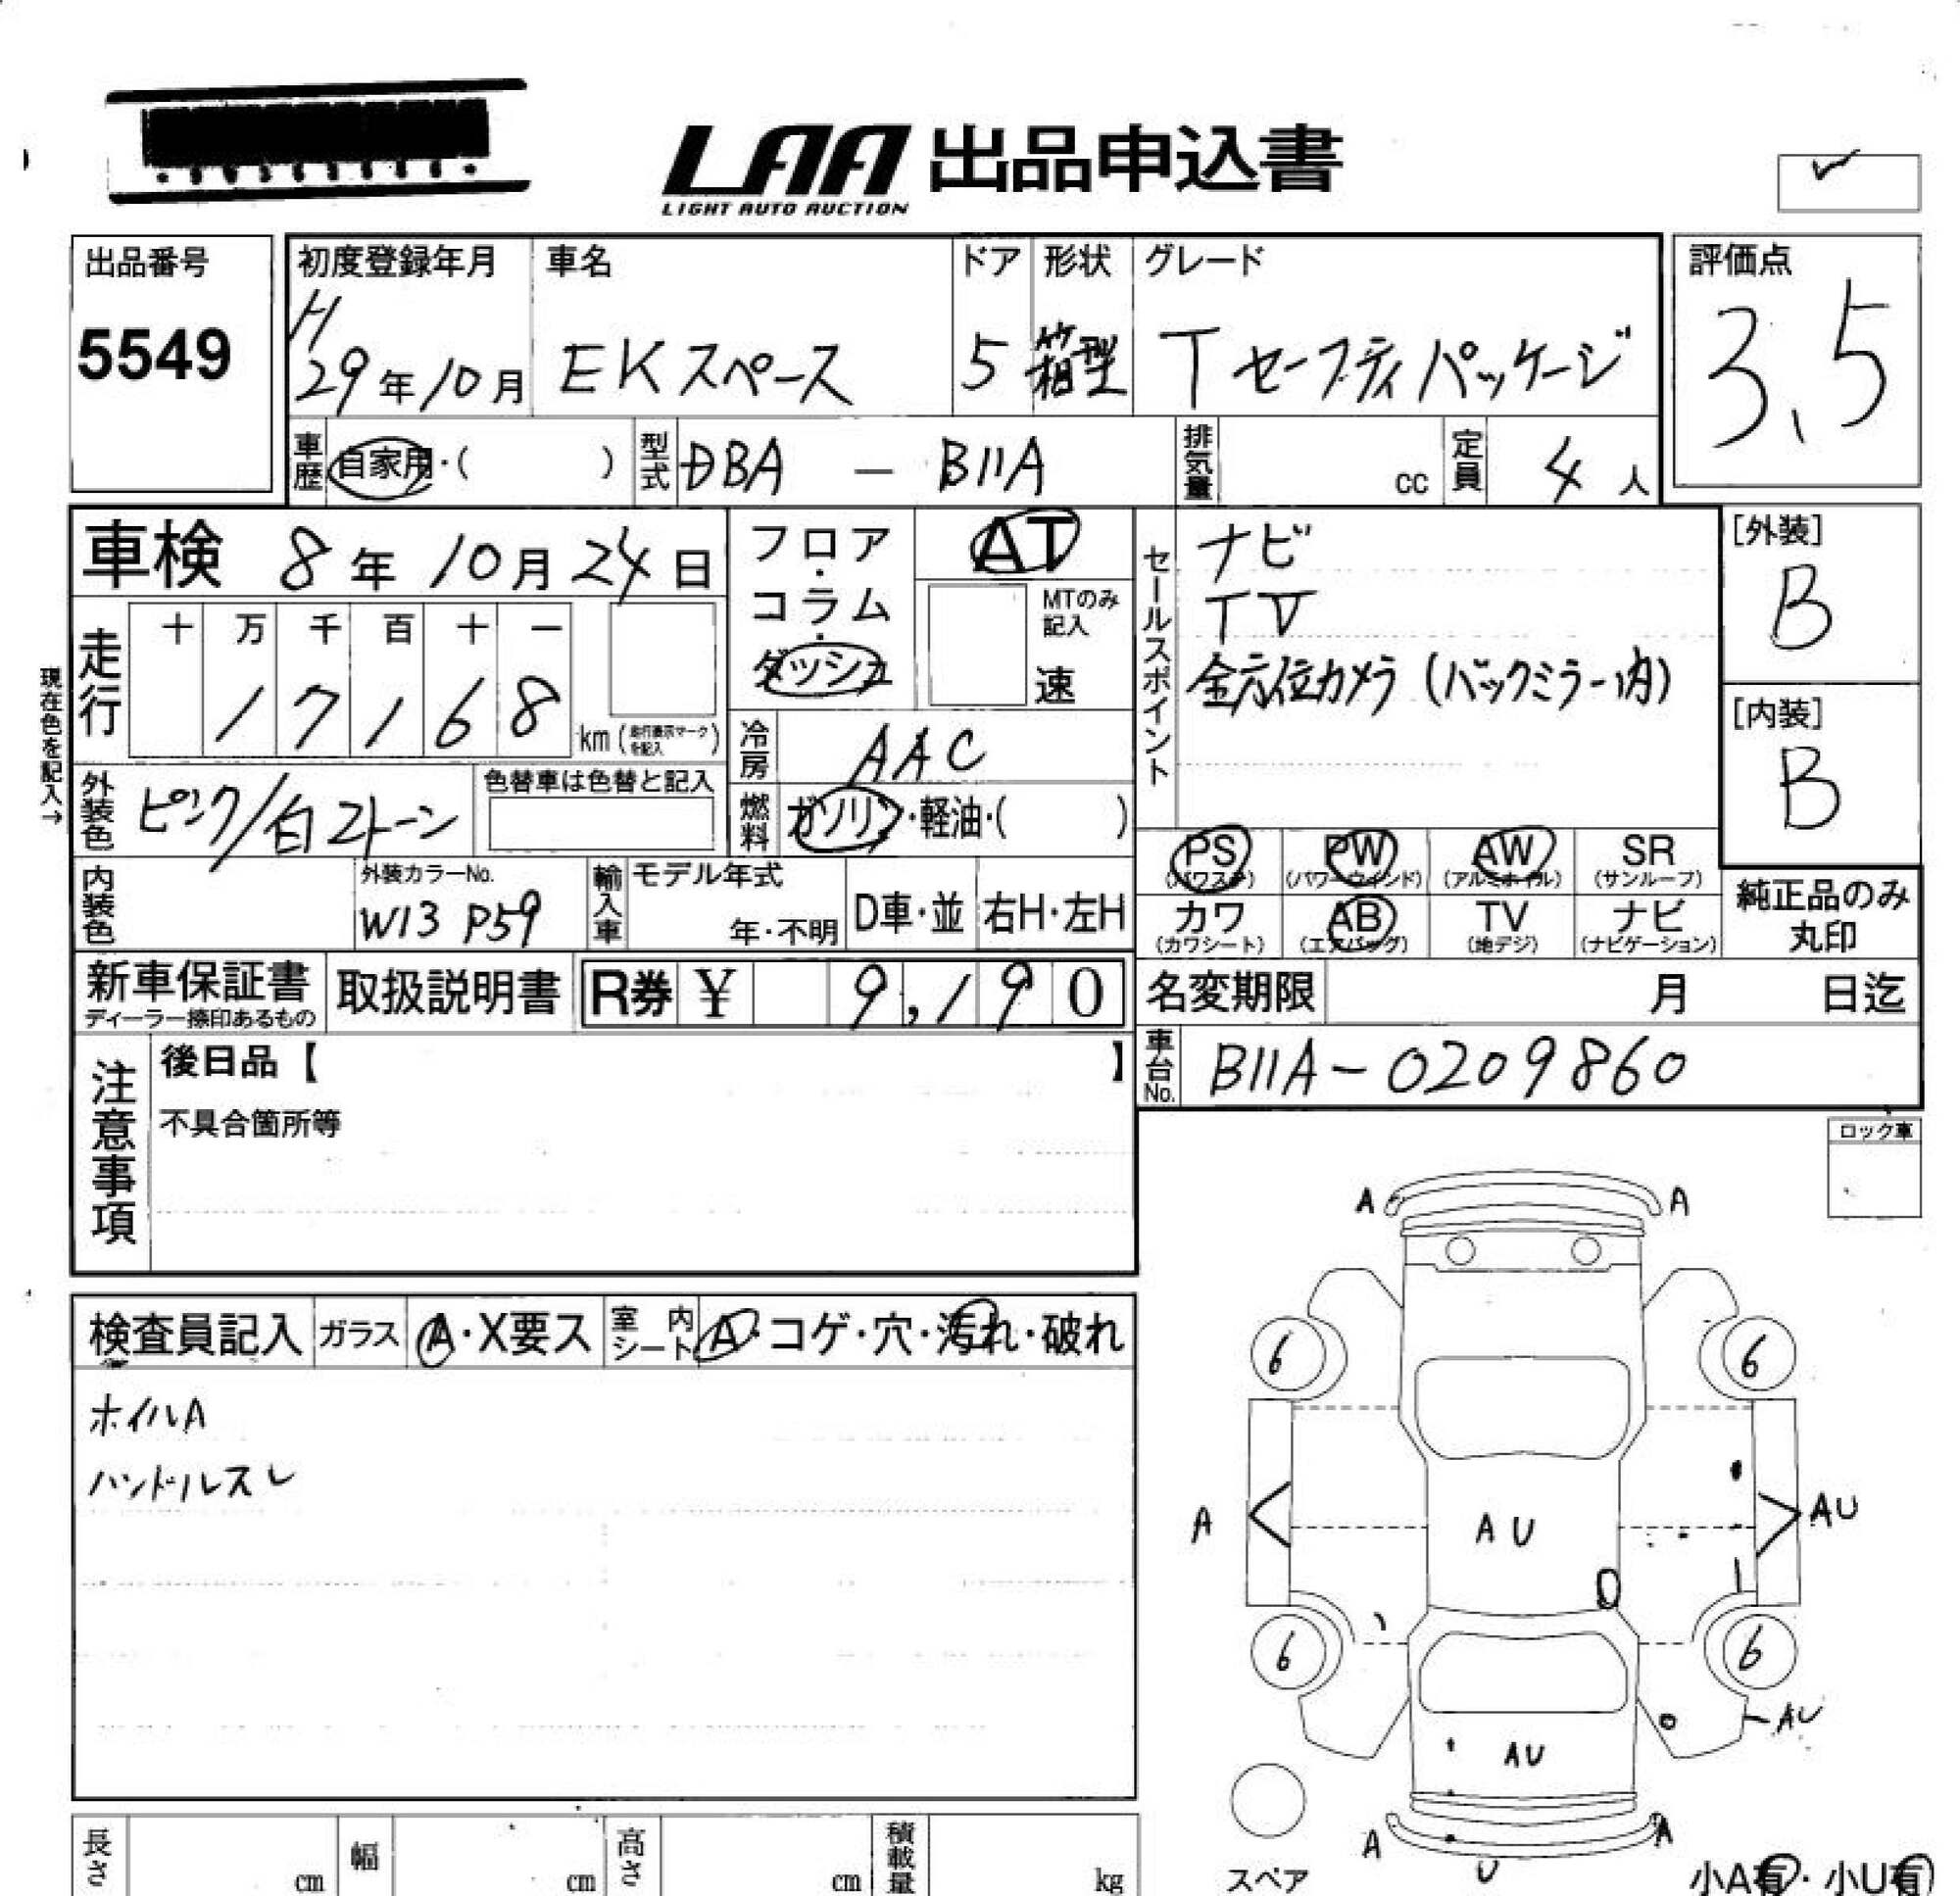 LAA 出品申込書
LIGHT AUTO AUCTION
出品番号
5549
初度登録年月
H
29年10月
車名
EKスペース
ドア
5
形状
箱型
グレード
Tセーフティパッケージ
評価点
3.5
車歴 自家用・( )
型式 DBA - B11A
排気量 cc
定員 4人
車検 8年10月24日
フロア・コラム・ダッシュ
AT
MTのみ記入
速
セールスポイント
ナビ
TV
全方位カメラ(バックミラー内)
[外装]
B
[内装]
B
現在色を記入→
走行
十 万 千 百 十 一
1 7 1 6 8 km(走行表示マークを記入)
冷房 AAC
燃料 ガソリン・軽油・( )
外装色 ピンク/白2トーン
色替車は色替と記入
内装色
外装カラーNo.
W13 P59
輸入車
モデル年式
年・不明
D車・並
右H・左H
PS (パワステ)
PW (パワーウィンド)
AW (アルミホイル)
SR (サンルーフ)
カワ (カワシート)
AB (エアバッグ)
TV (地デジ)
ナビ (ナビゲーション)
純正品のみ丸印
新車保証書
ディーラー捺印あるもの
取扱説明書
R券 ¥ 9,190
名変期限 月 日迄
車台No. B11A-0209860
注意事項
後日品【 】
不具合箇所等
ロック車
検査員記入
ガラス A・X要ス
室内シート A・コゲ・穴・汚れ・破れ
ホイルA
ハンドルスレ
A A
6 6
A AU AU
6 6
AU
AU
A A
U
スペア
小A有・小U有
長さ cm
幅 cm
高さ cm
積載量 kg